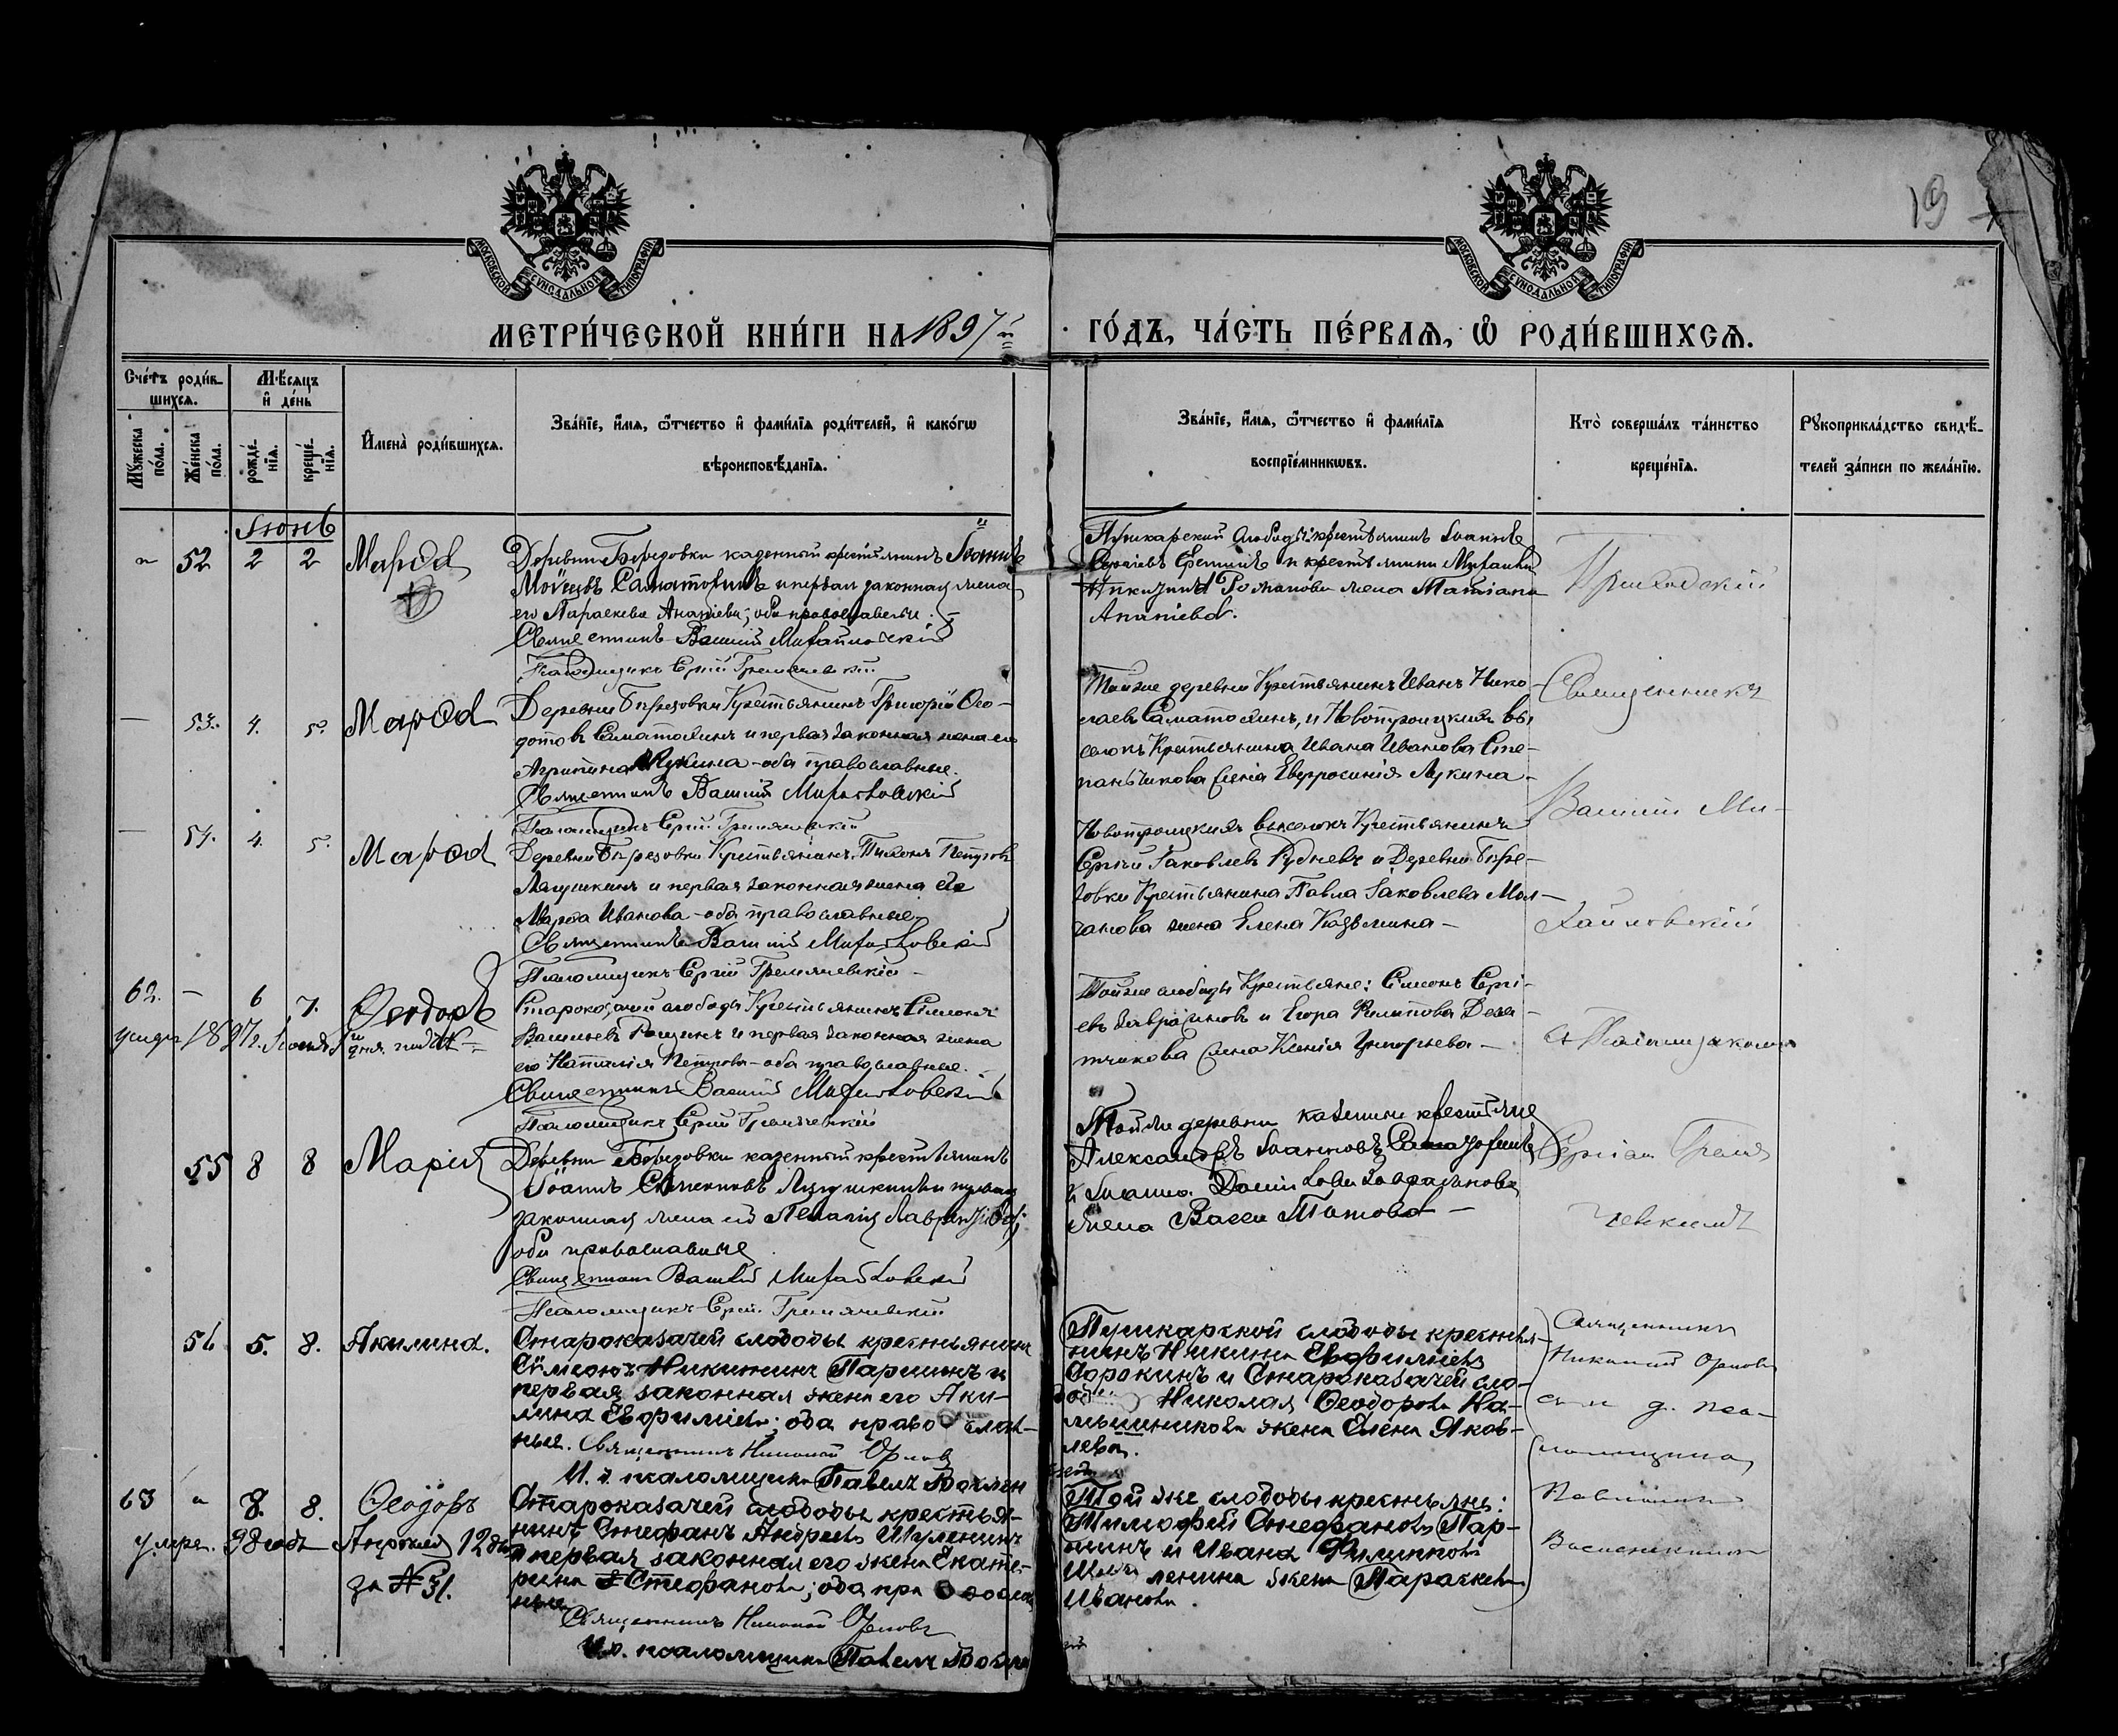 МОСКОВСКОЙ СѴНОДАЛЬНОЙ ТИПОГРАФІИ
МОСКОВСКОЙ СѴНОДАЛЬНОЙ ТИПОГРАФІИ
19
МЕТРИ́ЧЕСКОЙ КНИ́ГИ НА 1897й
ГО́ДЪ, ЧА́СТЬ ПЕ́РВАѦ, Ѡ҆ РОДИ́ВШИХСѦ.
Сче́тъ роди́в-
шихсѧ.
Мѣ́сѧцъ
и҆ де́нь
Мꙋ́жеска
по́ла.
Же́нска
по́ла.
рожде́-
нїѧ.
креще́-
нїѧ.
И҆мена̀ роди́вшихсѧ.
Зва́нїе, и҆́мѧ, ѻ҆́тчество и҆ фами́лїѧ роди́телей, и҆ како́гѡ
вѣроисповѣ́данїѧ.
Зва́нїе, и҆́мѧ, ѻ҆́тчество и҆ фами́лїѧ
воспрїе́мникѡвъ.
Кто̀ соверша́лъ та́инство
креще́нїѧ.
Рꙋкоприкла́дство свидѣ́-
телей за́писи по жела́нїю.
Іюнь
52 2 2 Марѳа
Деревни Березовки казенный крестьянинъ Іоаннъ
и первая законная жена
его Параскева Ананіева; оба православные.
Священникъ Василій Михайловскій
Псаломщикъ Сергій Гремячевскій
Пушкарской слободы крестьянинъ Іоаннъ
и крестьянина Михаила
жена Татіана
Ананіева.
— 53. 4. 5. Марѳа
Деревни Березовки Крестьянинъ Григорій Ѳео-
дотовъ Саматохинъ и первая законная жена его
Агрипина Лукина – оба православные.
Священникъ Василій Михайловскій
Псаломщикъ Сергій Гремячевскій
Тойже деревни Крестьянинъ Иванъ Нико-
лаевъ Саматохинъ, и Новотроицкихъ вы
селокъ Крестьянина Ивана Иванова Сте-
панчикова жена Евфросинія Лукина –
— 54. 4. 5. Марѳа
Деревни Березовки Крестьянинъ Тихонъ Петровъ
Лягушкинъ и первая законная жена его
Марѳа Иванова – оба православные.
Священникъ Василій Михайловскій
Псаломщикъ Сергій Гремячевскій –
Новотроицкихъ выселокъ Крестьянинъ
Сергѣй Яковлевъ Рудневъ и Деревни Бере-
зовки Крестьянина Павла Яковлева Мол-
чанова жена Елена Козьмина –
62. — 6 7. Ѳеодоръ
умеръ 1897г. Іюня
Староказачей слободы Крестьянинъ Симеонъ
Васильевъ и первая законная жена
его Наталія Петрова – оба православные.
Священникъ Василій Михайловскій
Псаломщикъ Сергій Гремячевскій
Тойже слободы Крестьяне: Симеонъ Сергі-
евъ и Егора Филипова Деся-
тникова жена Ксенія Григорьева –
55 8 8 Марія
Деревни Березовки казенный крестьянинъ
Іоаннъ Симеоновъ Лягушкинъ и первая
законная жена его Пелагія Лаврентіева;
оба православные
Священникъ Василій Михайловскій
Псаломщикъ Сергій Гремячевскій
Тойже деревни казенные крестьяне
Александръ Іоанновъ
жена
Приходскій
Священникъ
Василій Ми-
хайловскій
съ Псаломщикомъ
Сергіемъ Гремя
чевскимъ
56 5. 8. Акилина.
Староказачей слободы крестьянинъ
Симеонъ Никитинъ Паршинъ и
первая законная жена его Аки-
лина Евфиміева; оба православ-
ные. Священникъ Николай Орловъ
И. д. псаломщика Павелъ
Пушкарской слободы крестья-
нинъ Никита Евфиміевъ
Сорокинъ и Староказачей сло-
Николая Ѳеодорова
жена Елена Яков-
лева.
Священникъ
Николай Орловъ
съ и. д. пса-
ломщика
63 8. 8. Ѳеодоръ
умеръ. 98 годъ Апрѣля 12 дня
за № 31.
Староказачей слободы крестья-
нинъ Стефанъ Андреевъ Шуленинъ
и первая законная его жена Екате-
рина Стефанова; оба православ
ные.
Священникъ Николай Орловъ
И. д. псаломщика Павелъ
Той же слободы крестьяне:
Тимофей Стефановъ Пар-
шинъ и Ивана Филиппова
Шуленина жена Параскева
Иванова.